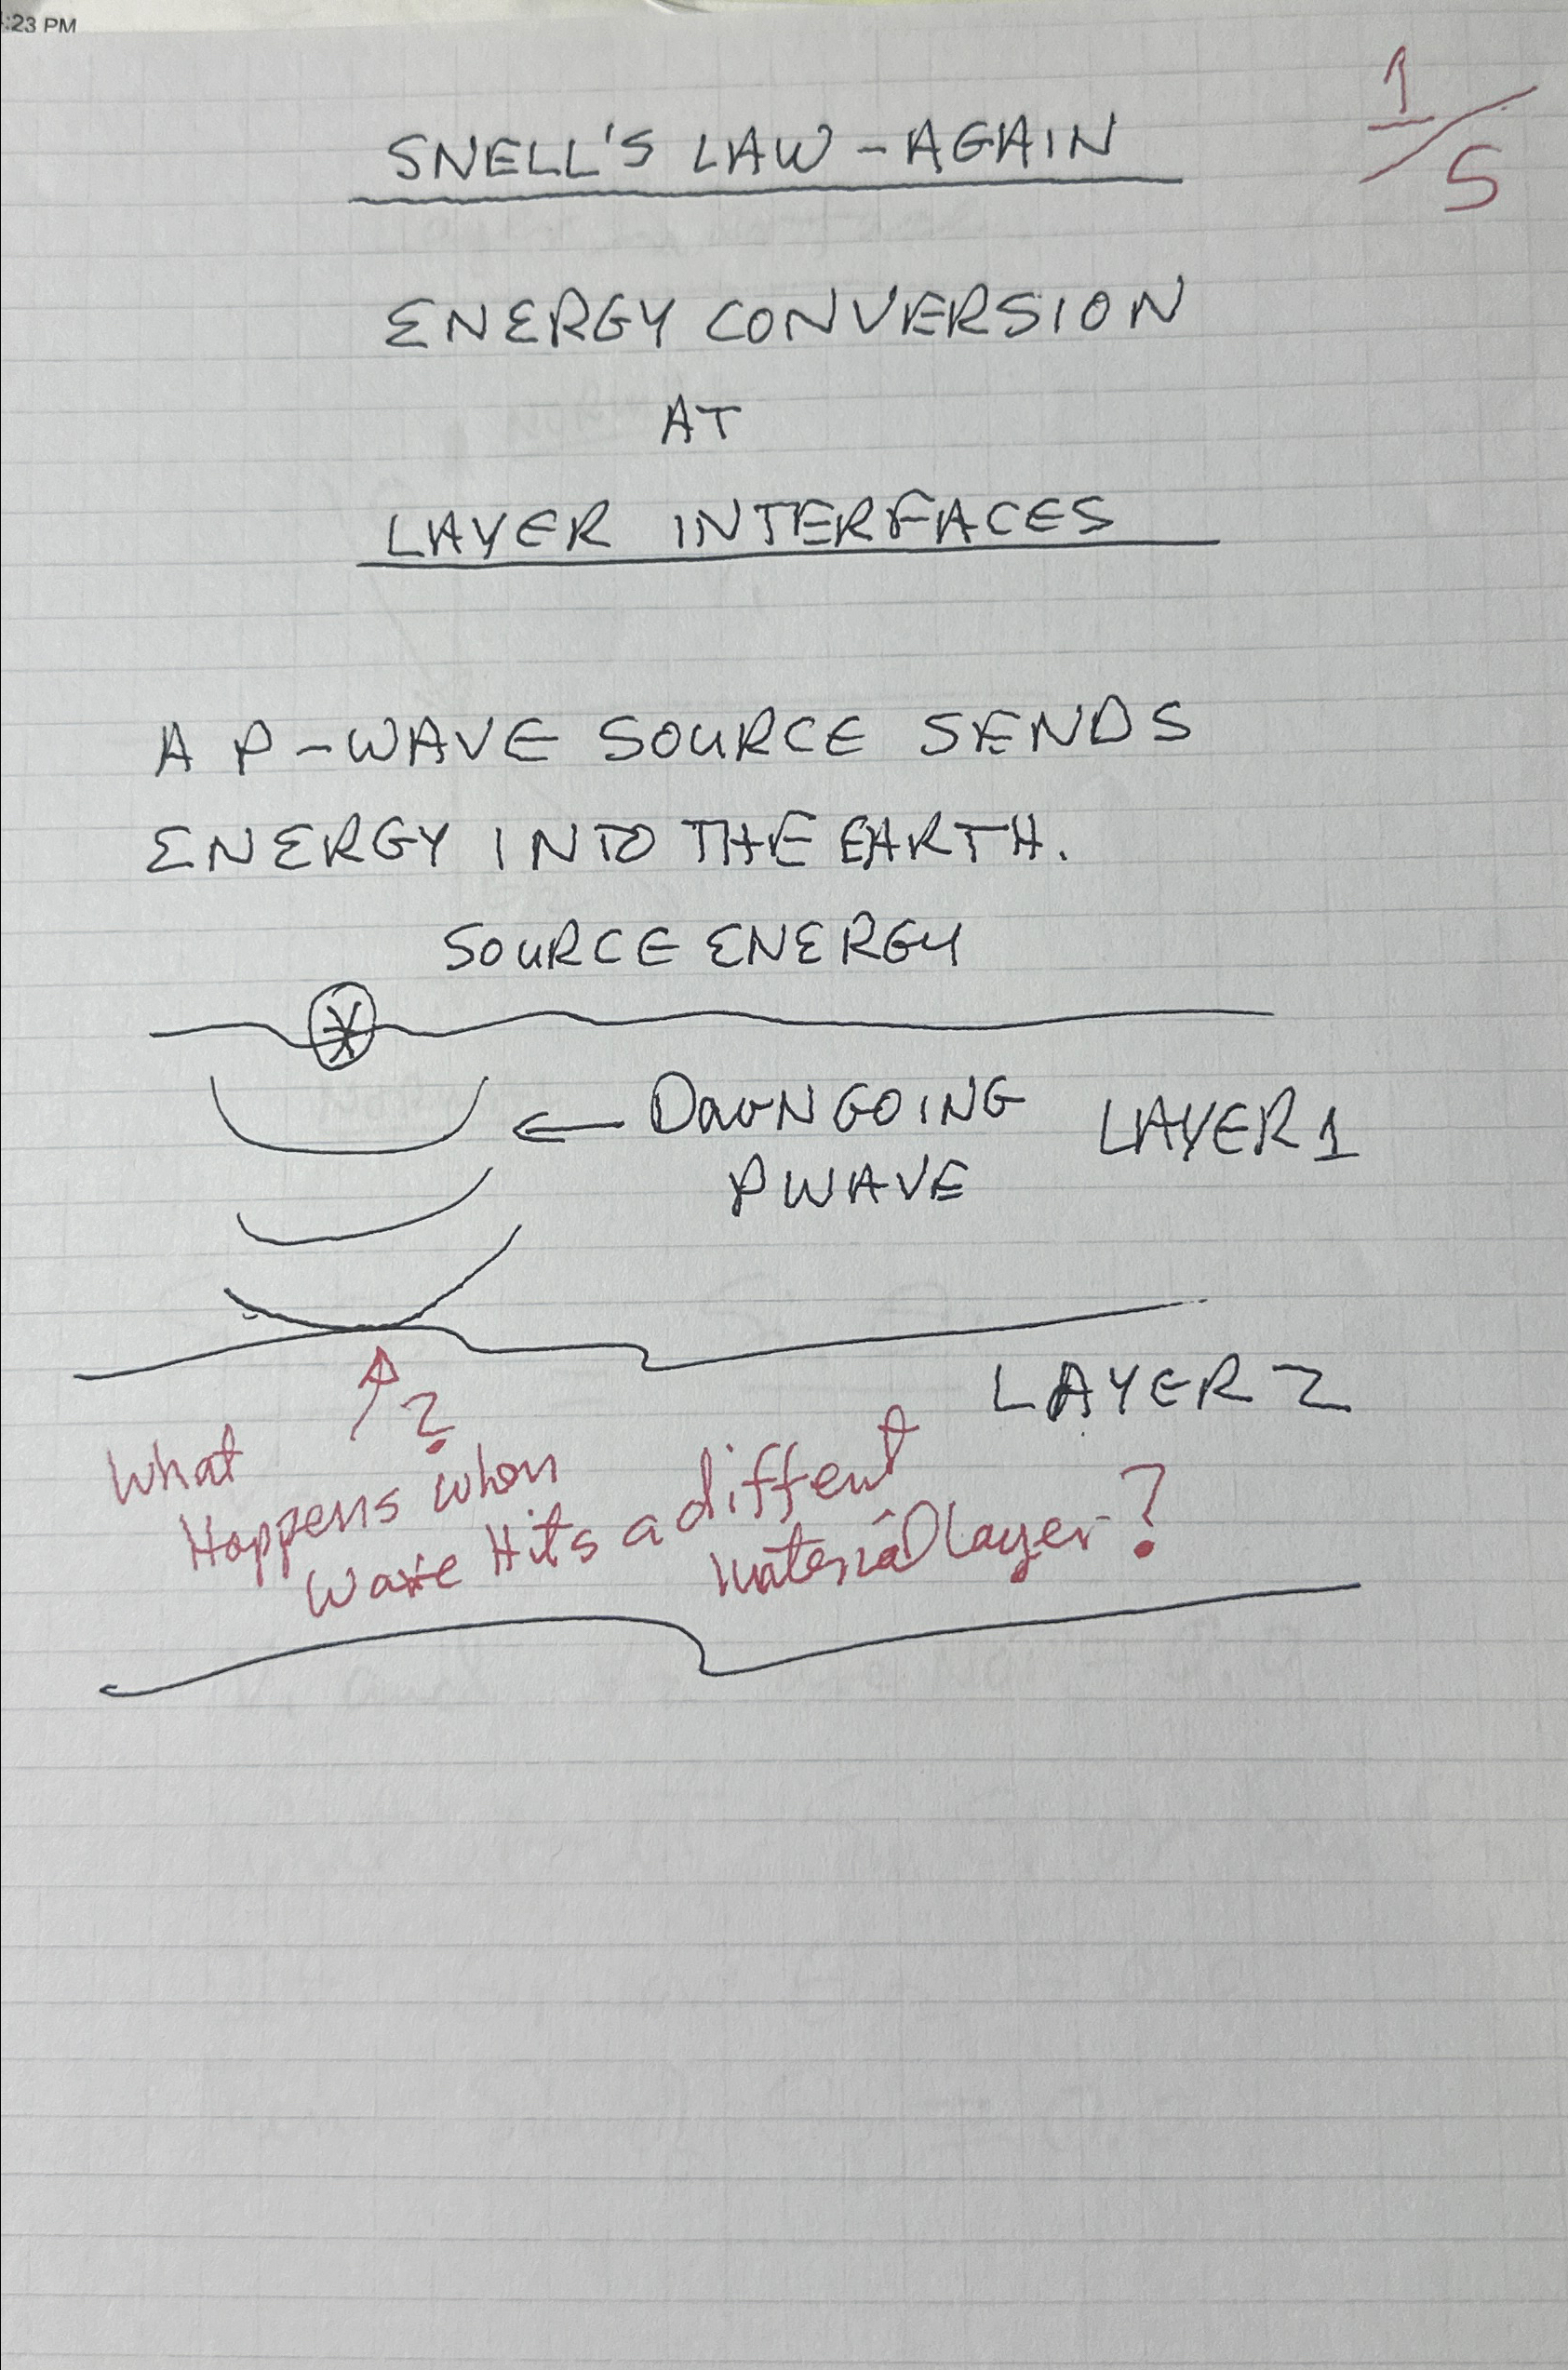 :23 PM
1/5
SNELL'S LAW - AGAIN
ENERGY CONVERSION
AT
LAYER INTERFACES
A P-WAVE SOURCE SENDS
ENERGY INTO THE EARTH.
SOURCE ENERGY
← DOWNGOING LAYER 1
P WAVE
LAYER 2
?
What
Happens when
wave Hits a diffent
material layer?